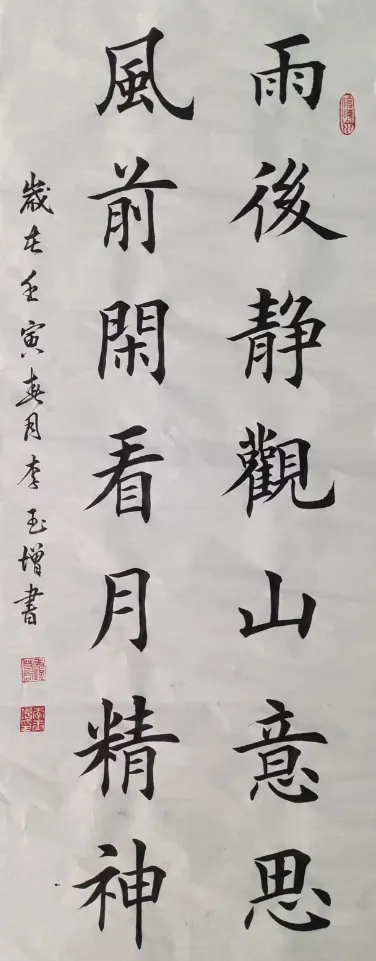 雨後静觀山意思
風前閑看月精神
歲在壬寅春月李玉增書